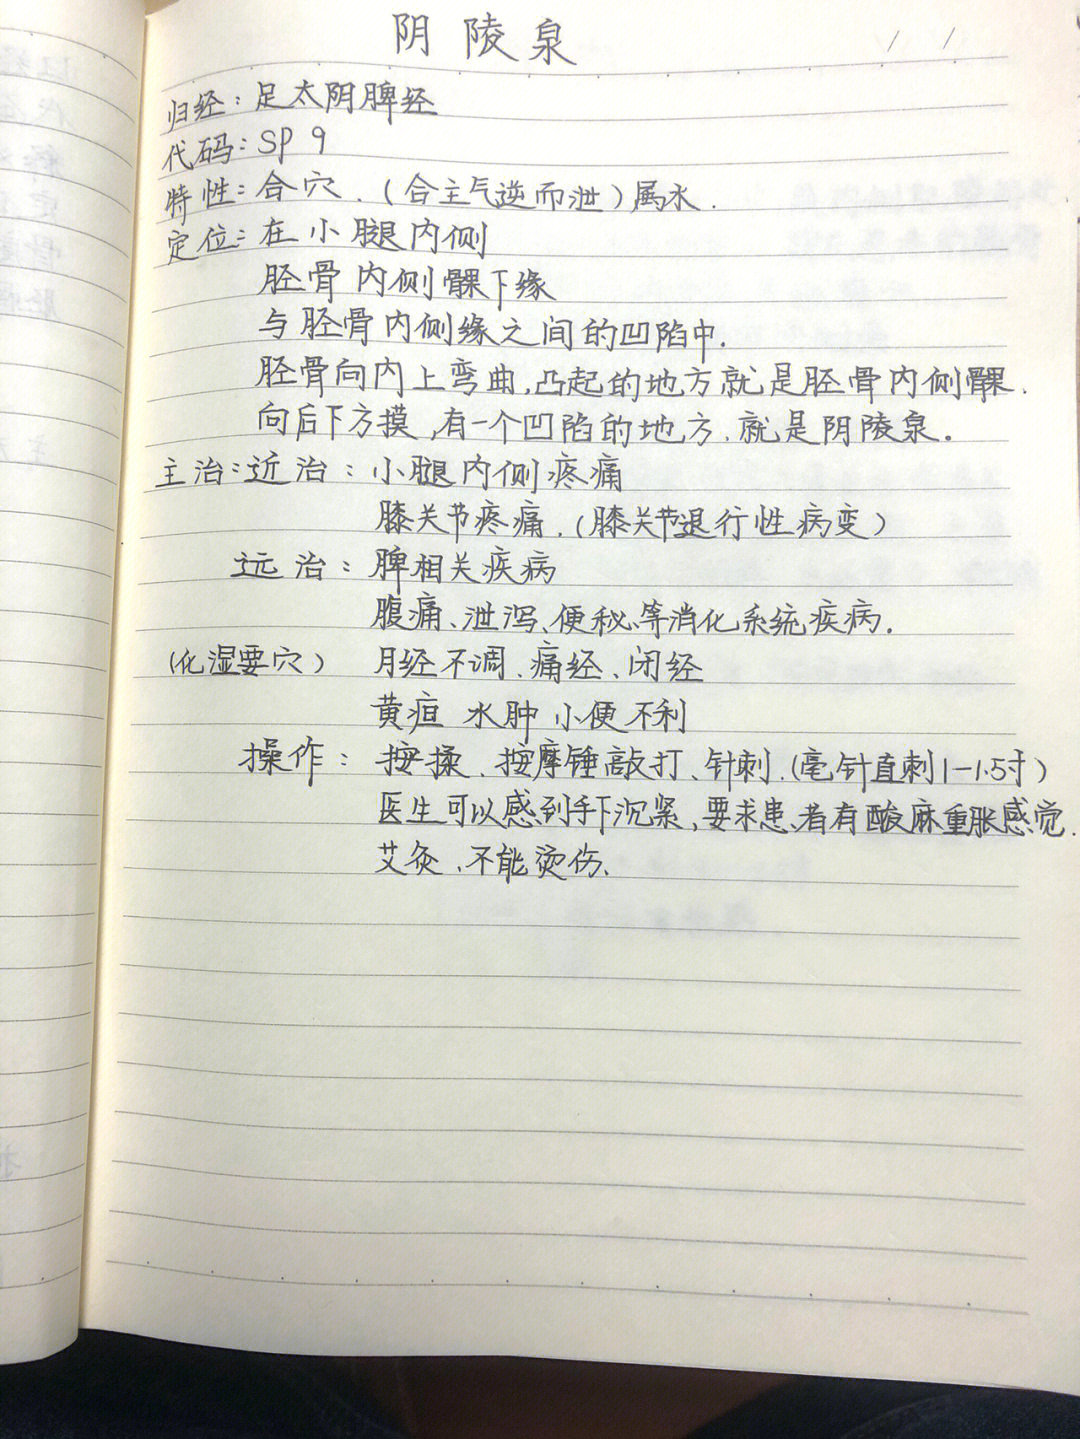 阴陵泉
归经：足太阴脾经
代码：SP 9
特性：合穴．（合主气逆而泄）属水．
定位：在小腿内侧
胫骨内侧髁下缘
与胫骨内侧缘之间的凹陷中．
胫骨向内上弯曲，凸起的地方就是胫骨内侧髁．
向后下方摸，有一个凹陷的地方．就是阴陵泉。
主治：近治：小腿内侧疼痛
膝关节疼痛．（膝关节退行性病变）
远治：脾相关疾病
腹痛、泄泻、便秘、等消化系统疾病．
（化湿要穴）月经不调、痛经、闭经
黄疸 水肿 小便不利
操作：按揉、按摩锤敲打、针刺．（毫针直刺1-1.5寸）
医生可以感到手下沉紧，要求患者有酸麻重胀感觉．
艾灸、不能烫伤、